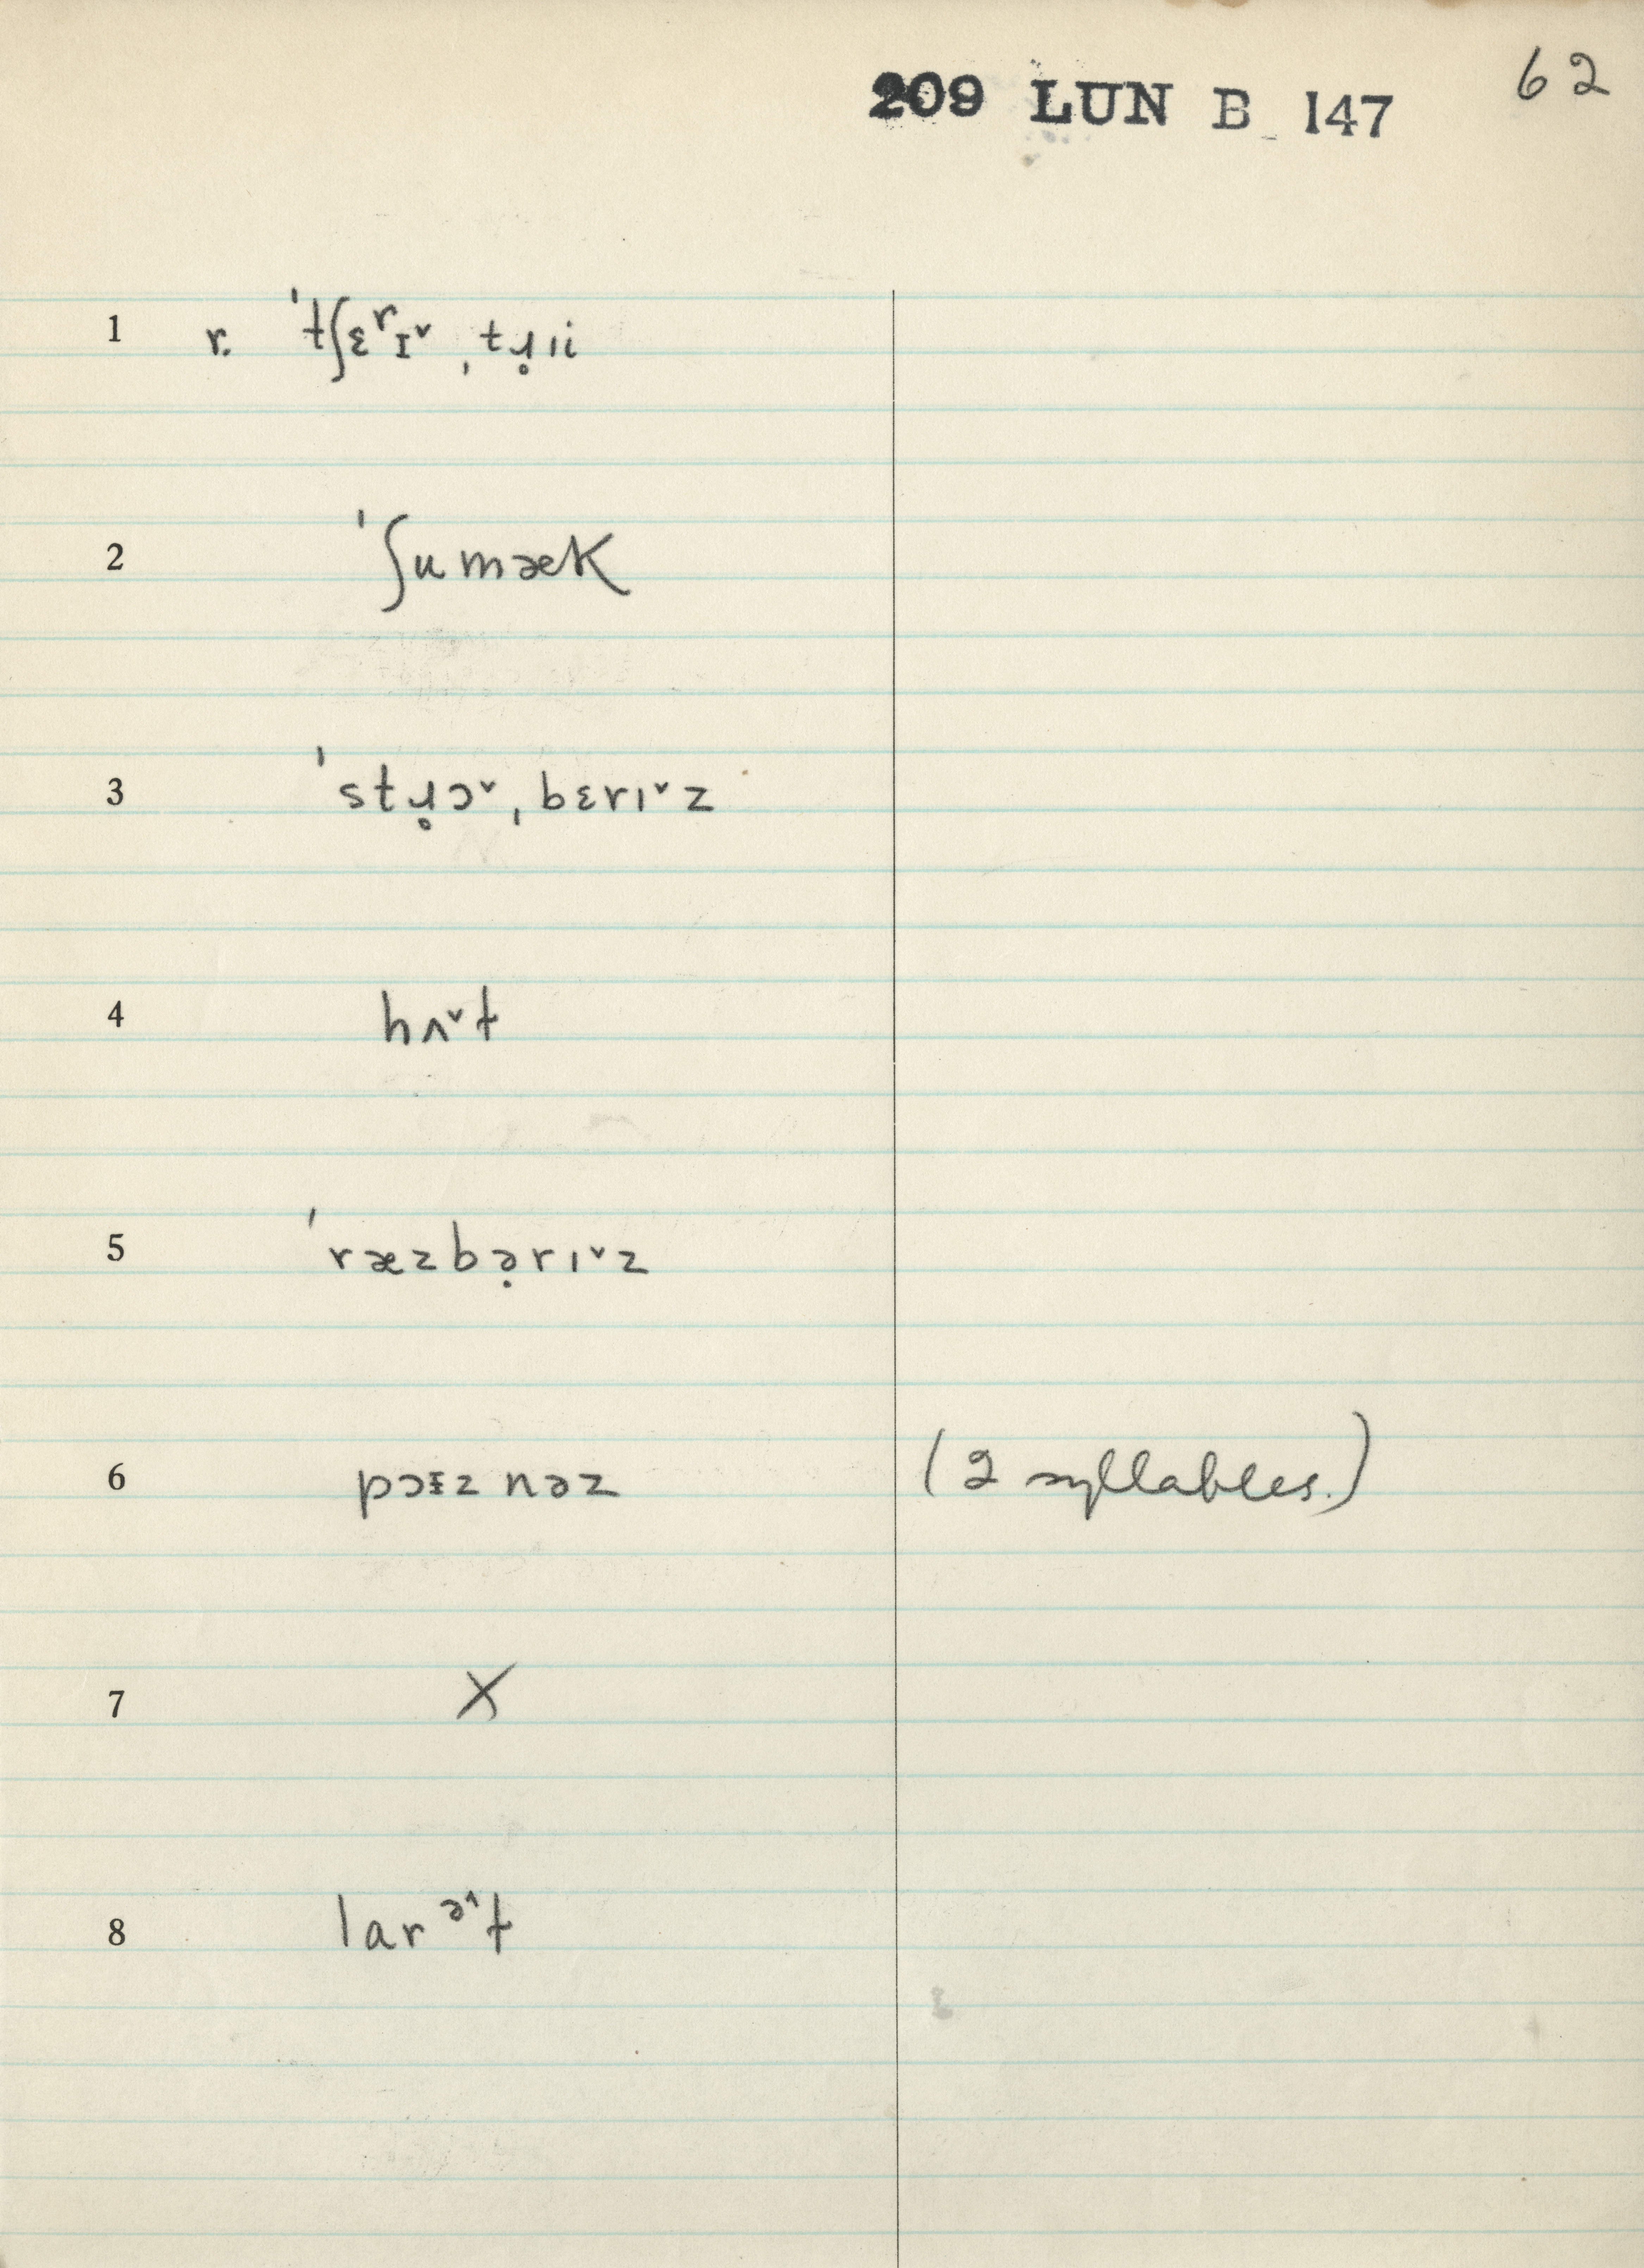 62
209 LUN B 147
1 r. ˈtʃɛʳɪ˅ˌtɹ̥ii
2 ˈʃumæk
3 ˈstɹ̥ɔ˅ˌbɛrɪ˅z
4 hʌ˅t
5 ˈræzbə̣rɪ˅z
6 pɔɪznəz (2 syllables.)
7 X
8 larᵊ˄t